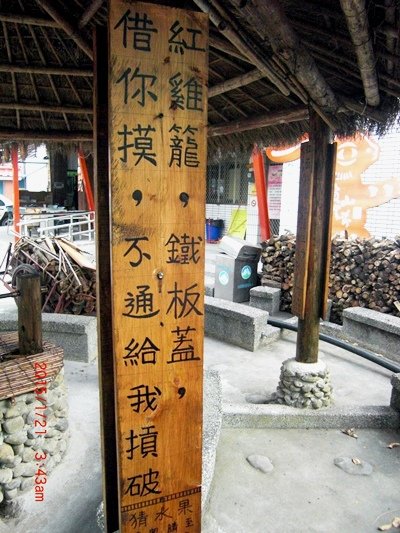 紅雞籠，鐵板蓋，
借你摸，不通給我摃破
猜水果
2015/1/21 3:43am